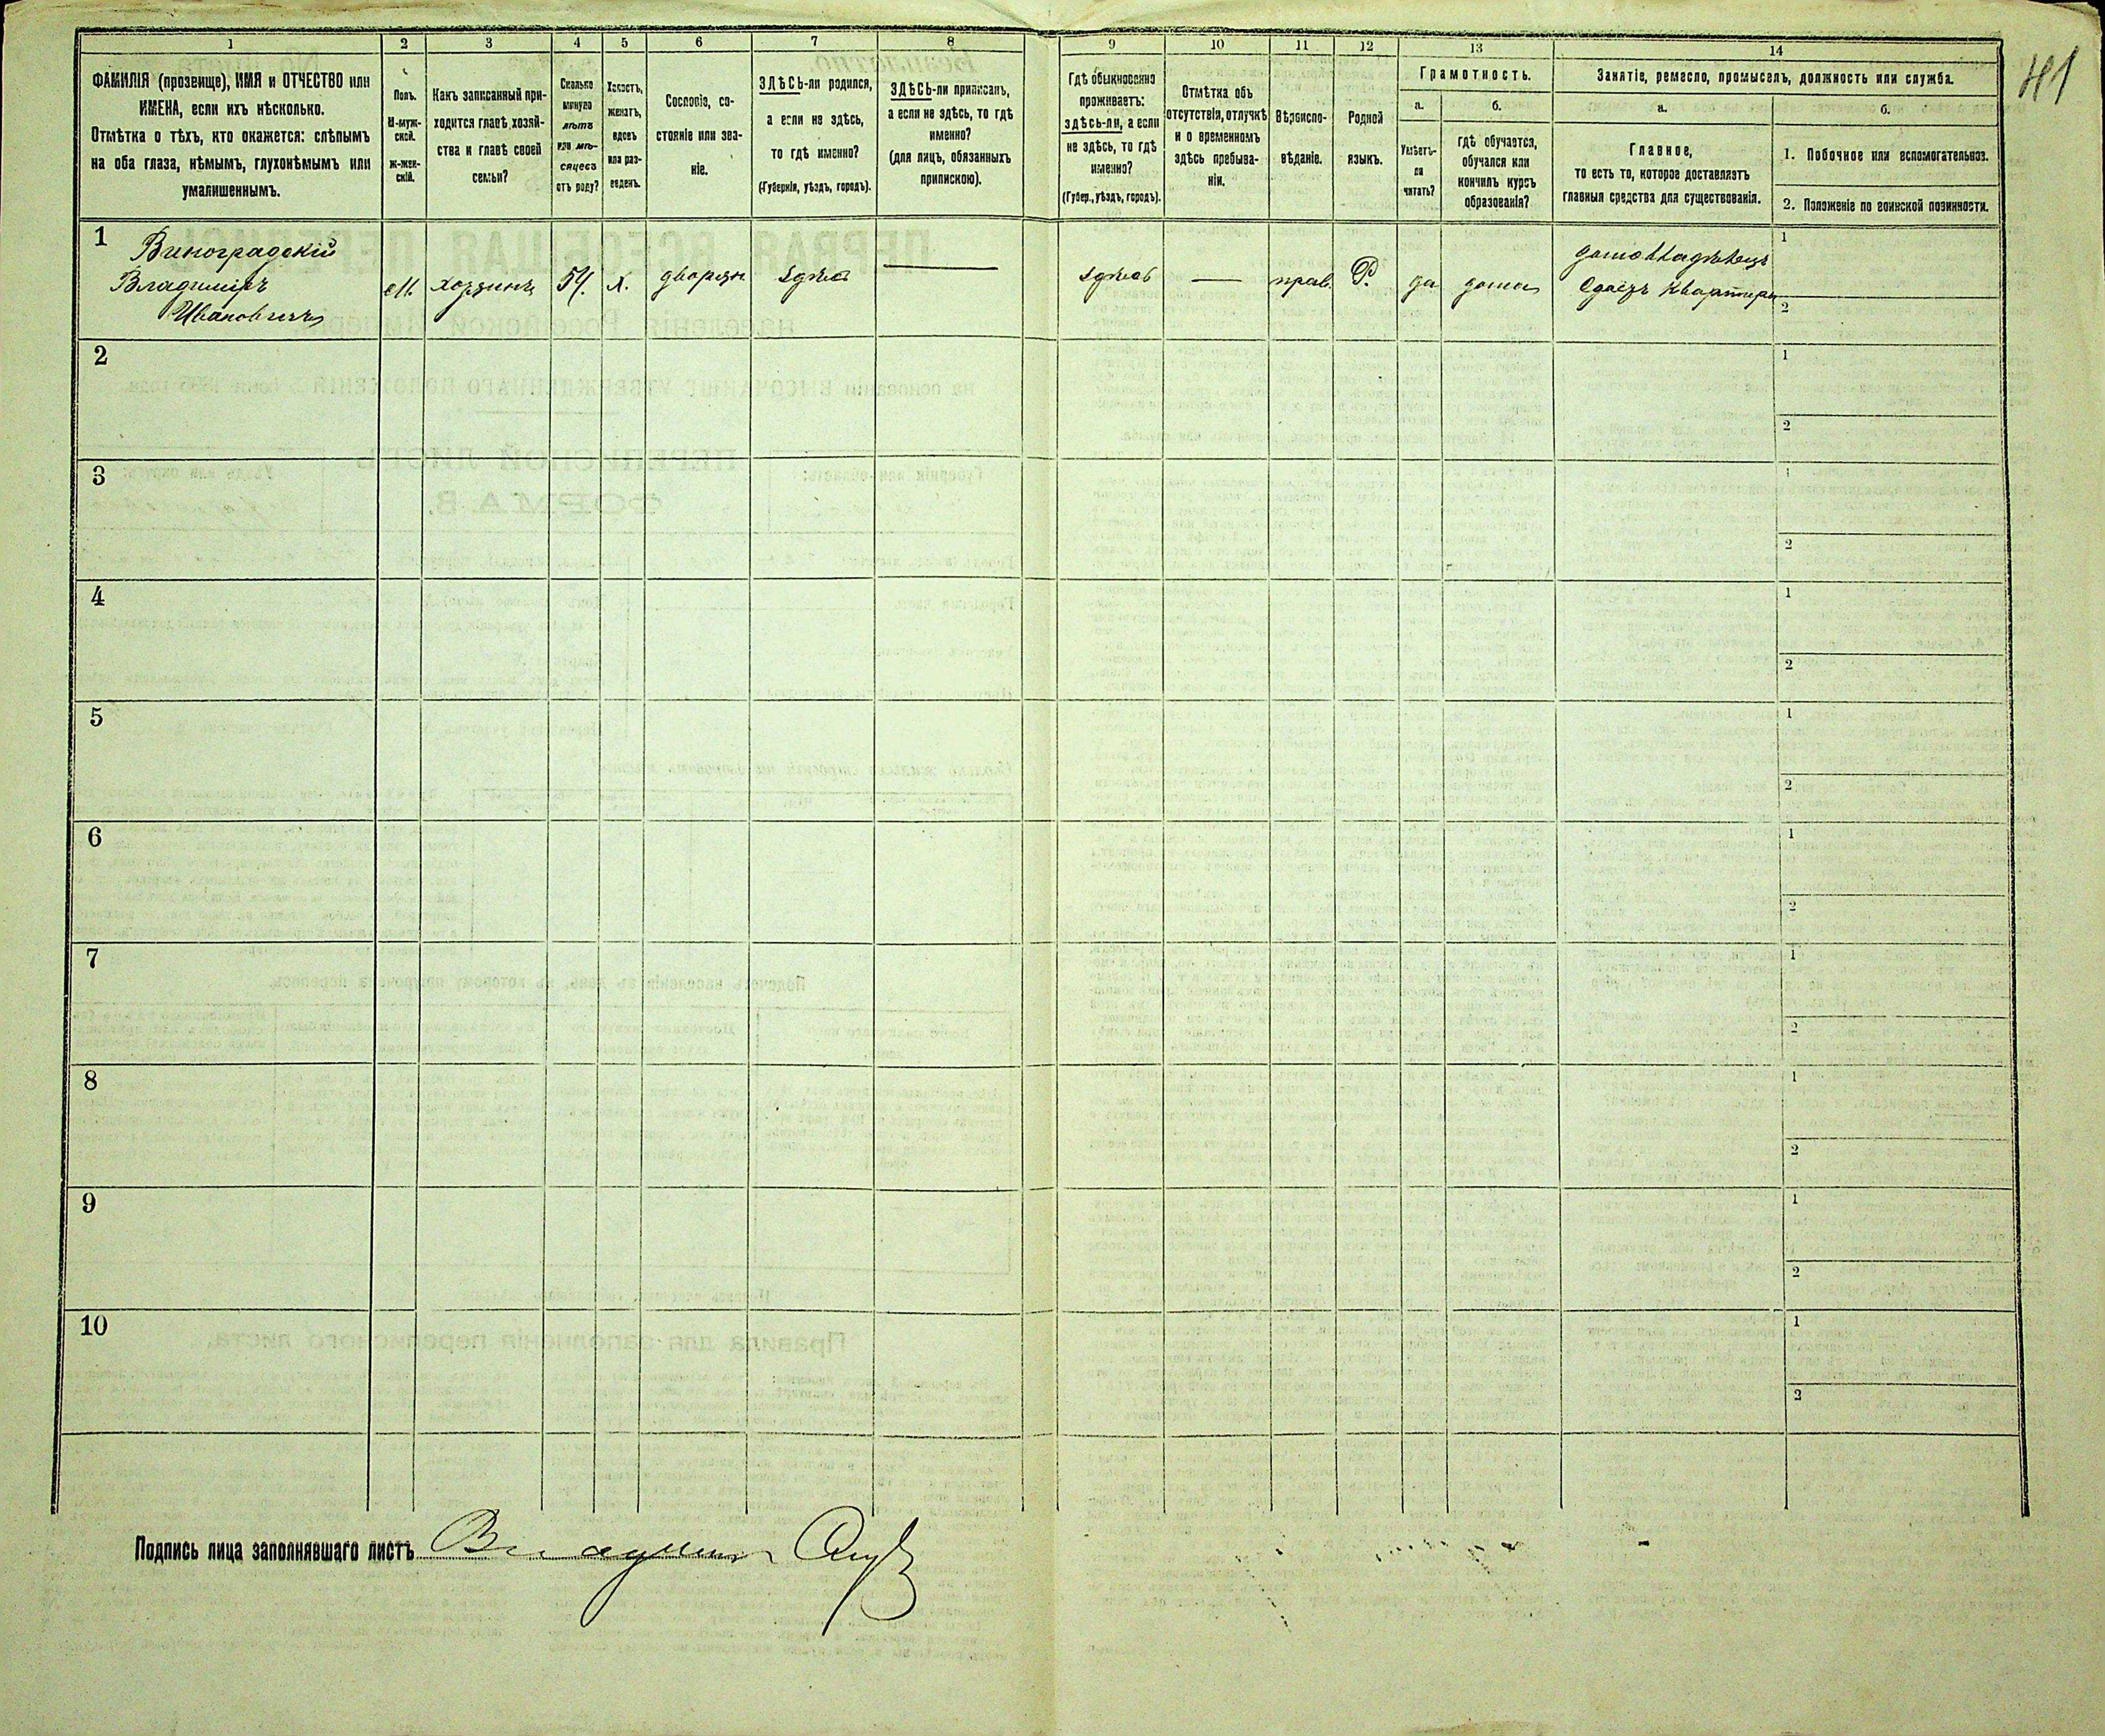 41
1
2
3
4
5
6
7
8
9
10
11
12
13
14
ФАМИЛІЯ (прозвище), ИМЯ и ОТЧЕСТВО или
ИМЕНА, если ихъ нѣсколько.
Отмѣтка о тѣхъ, кто окажется: слѣпымъ
на оба глаза, нѣмымъ, глухонѣмымъ или
умалишеннымъ.
Полъ.
М-муж-
ской.
Ж-жен-
скій.
Какъ записанный при-
ходится главѣ хозяй-
ства и главѣ своей
семьи?
Сколько
минуло
лѣтъ
или мѣ-
сяцевъ
отъ роду?
Холостъ,
женатъ,
вдовъ
или раз-
веденъ.
Сословіе, со-
стояніе или зва-
ніе.
ЗДѢСЬ-ли родился,
а если не здѣсь,
то гдѣ именно?
(Губернія, уѣздъ, городъ).
ЗДѢСЬ-ли приписанъ,
а если не здѣсь, то гдѣ
именно?
(для лицъ, обязанныхъ
припискою).
Гдѣ обыкновенно
проживаетъ:
здѣсь-ли, а если
не здѣсь, то гдѣ
именно?
(Губер., уѣздъ, городъ).
Отмѣтка объ
отсутствіи, отлучкѣ
и о временномъ
здѣсь пребыва-
ніи.
Вѣроиспо-
вѣданіе.
Родной
языкъ.
Грамотность.
а.
б.
Умѣетъ-
ли
читать?
гдѣ обучается,
обучался или
кончилъ курсъ
образованія?
Занятіе, ремесло, промыселъ, должность или служба.
а.
б.
Главное,
то есть то, которое доставляетъ
главныя средства для существованія.
1. Побочное или вспомогательное.
2. Положеніе по воинской повинности.
1
Виноградскій
Владиміръ
Ивановичъ
М.
хозяинъ
54.
х.
дворян.
здѣсь
—
здѣсь
—
прав.
Р.
да
дома
домовладѣлецъ
Сдаетъ квартиры
1
2
2
1
2
3
1
2
4
1
2
5
1
2
6
1
2
7
1
2
8
1
2
9
1
2
10
1
2
Подпись лица заполнявшаго листъ